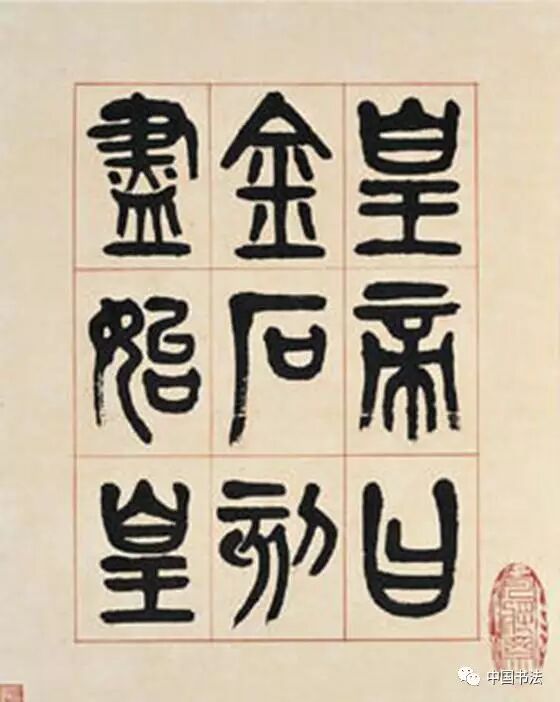 皇帝曰
金石刻
盡始皇
中国书法